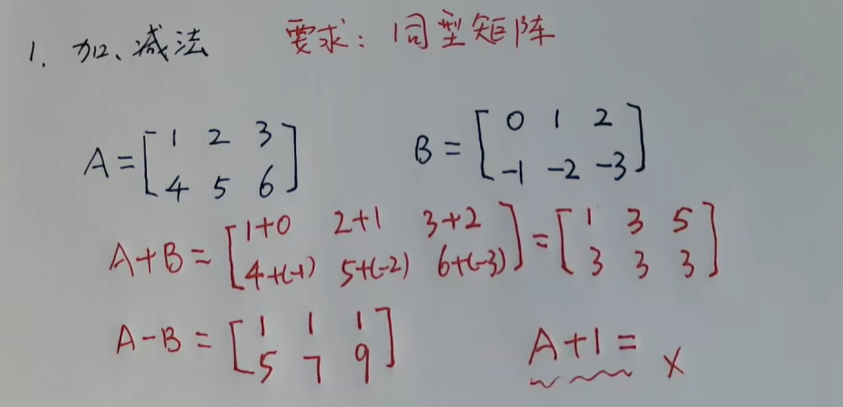 1. 加、减法 要求：同型矩阵
A = [1 2 3
4 5 6]
B = [0 1 2
-1 -2 -3]
A+B = [1+0 2+1 3+2
4+(-1) 5+(-2) 6+(-3)] = [1 3 5
3 3 3]
A-B = [1 1 1
5 7 9]
A+1= ×